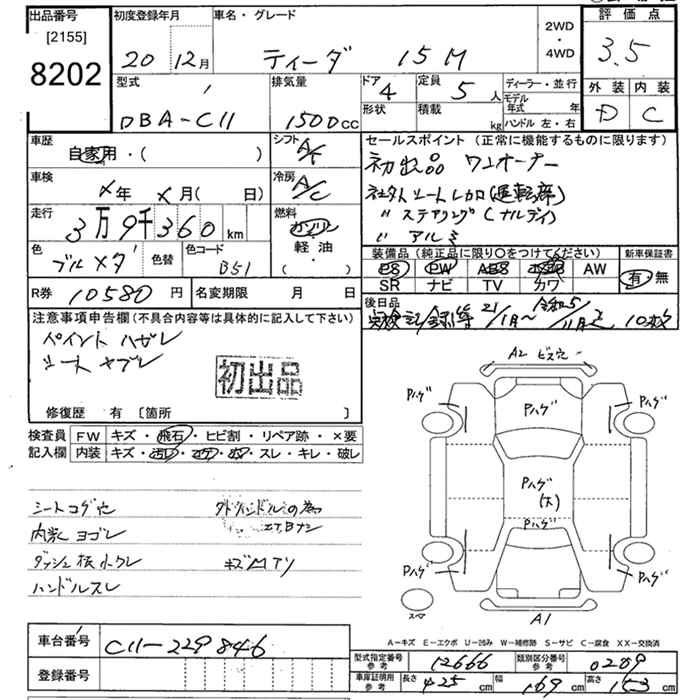 出品番号
[2155]
8202
初度登録年月
20 12月
車名・グレード
ティーダ 15M
2WD
・
4WD
評価点
3.5
外装 内装
D C
型式
DBA-C11
排気量
1500cc
ドア
4
形状
定員
5人
積載
kg
ディーラー・並行
モデル年式 年
ハンドル 左・右
車歴
自家用・( )
シフト
A/F
セールスポイント (正常に機能するものに限ります)
初出品 ワンオーナー
社外シートレカロ(運転席)
〃 ステアリング(ナルディ)
〃 アルミ
車検
×年×月( 日)
冷房
A/C
走行
3万9千360km
燃料
ガソリン
軽油・
( )
色
ブルーメタ
色替
色コード
B51
装備品 (純正品に限り○をつけてください)
PS PW ABS エアB AW
SR ナビ TV カワ
新車保証書
有・無
R券 10580円
名変期限 月 日
後日品
記録簿 21/1月～令和5/11月 10枚
注意事項申告欄(不具合内容等は具体的に記入して下さい)
ペイントハガレ
シートヤブレ
初出品
修復歴 有 〔箇所 〕
検査員
記入欄
FW キズ・飛石・ヒビ割・リペア跡・×要
内装 キズ・汚レ・コゲ・穴・スレ・キレ・破レ
シートコゲ穴
内装ヨゴレ
ダッシュ板小クレ
ハンドルスレ
外ハンドルの為
エアBナシ
キズMTリ
A2 ビス穴
Pハゲ
Pハゲ
Pハゲ
Pハゲ
(大)
Pハゲ
Pハゲ
Pハゲ
スペア
A1
A-キズ E-エクボ U-凹み W-補修跡 S-サビ C-腐食 XX-交換済
車台番号
C11-229846
登録番号
型式指定番号
参考
12666
類別区分番号
参考
0209
車庫証明用
参考
長さ 425cm
幅 169cm
高さ 153cm